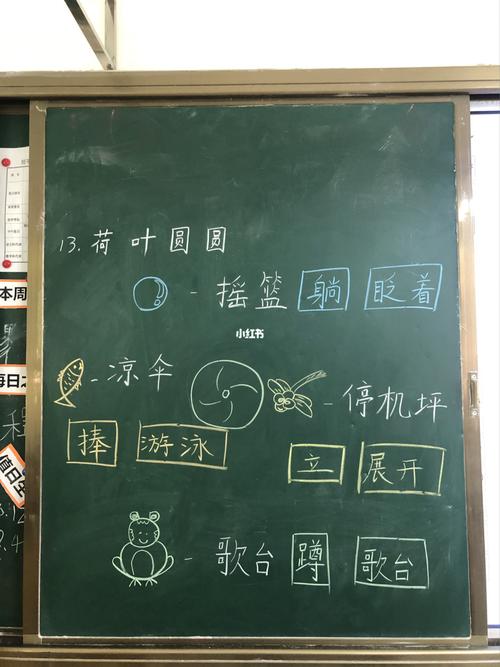 13.荷叶圆圆
- 摇篮 躺 眨着
小红书
- 凉伞
- 停机坪
捧 游泳
立 展开
- 歌台 蹲 歌台
本周
每日之
值日生